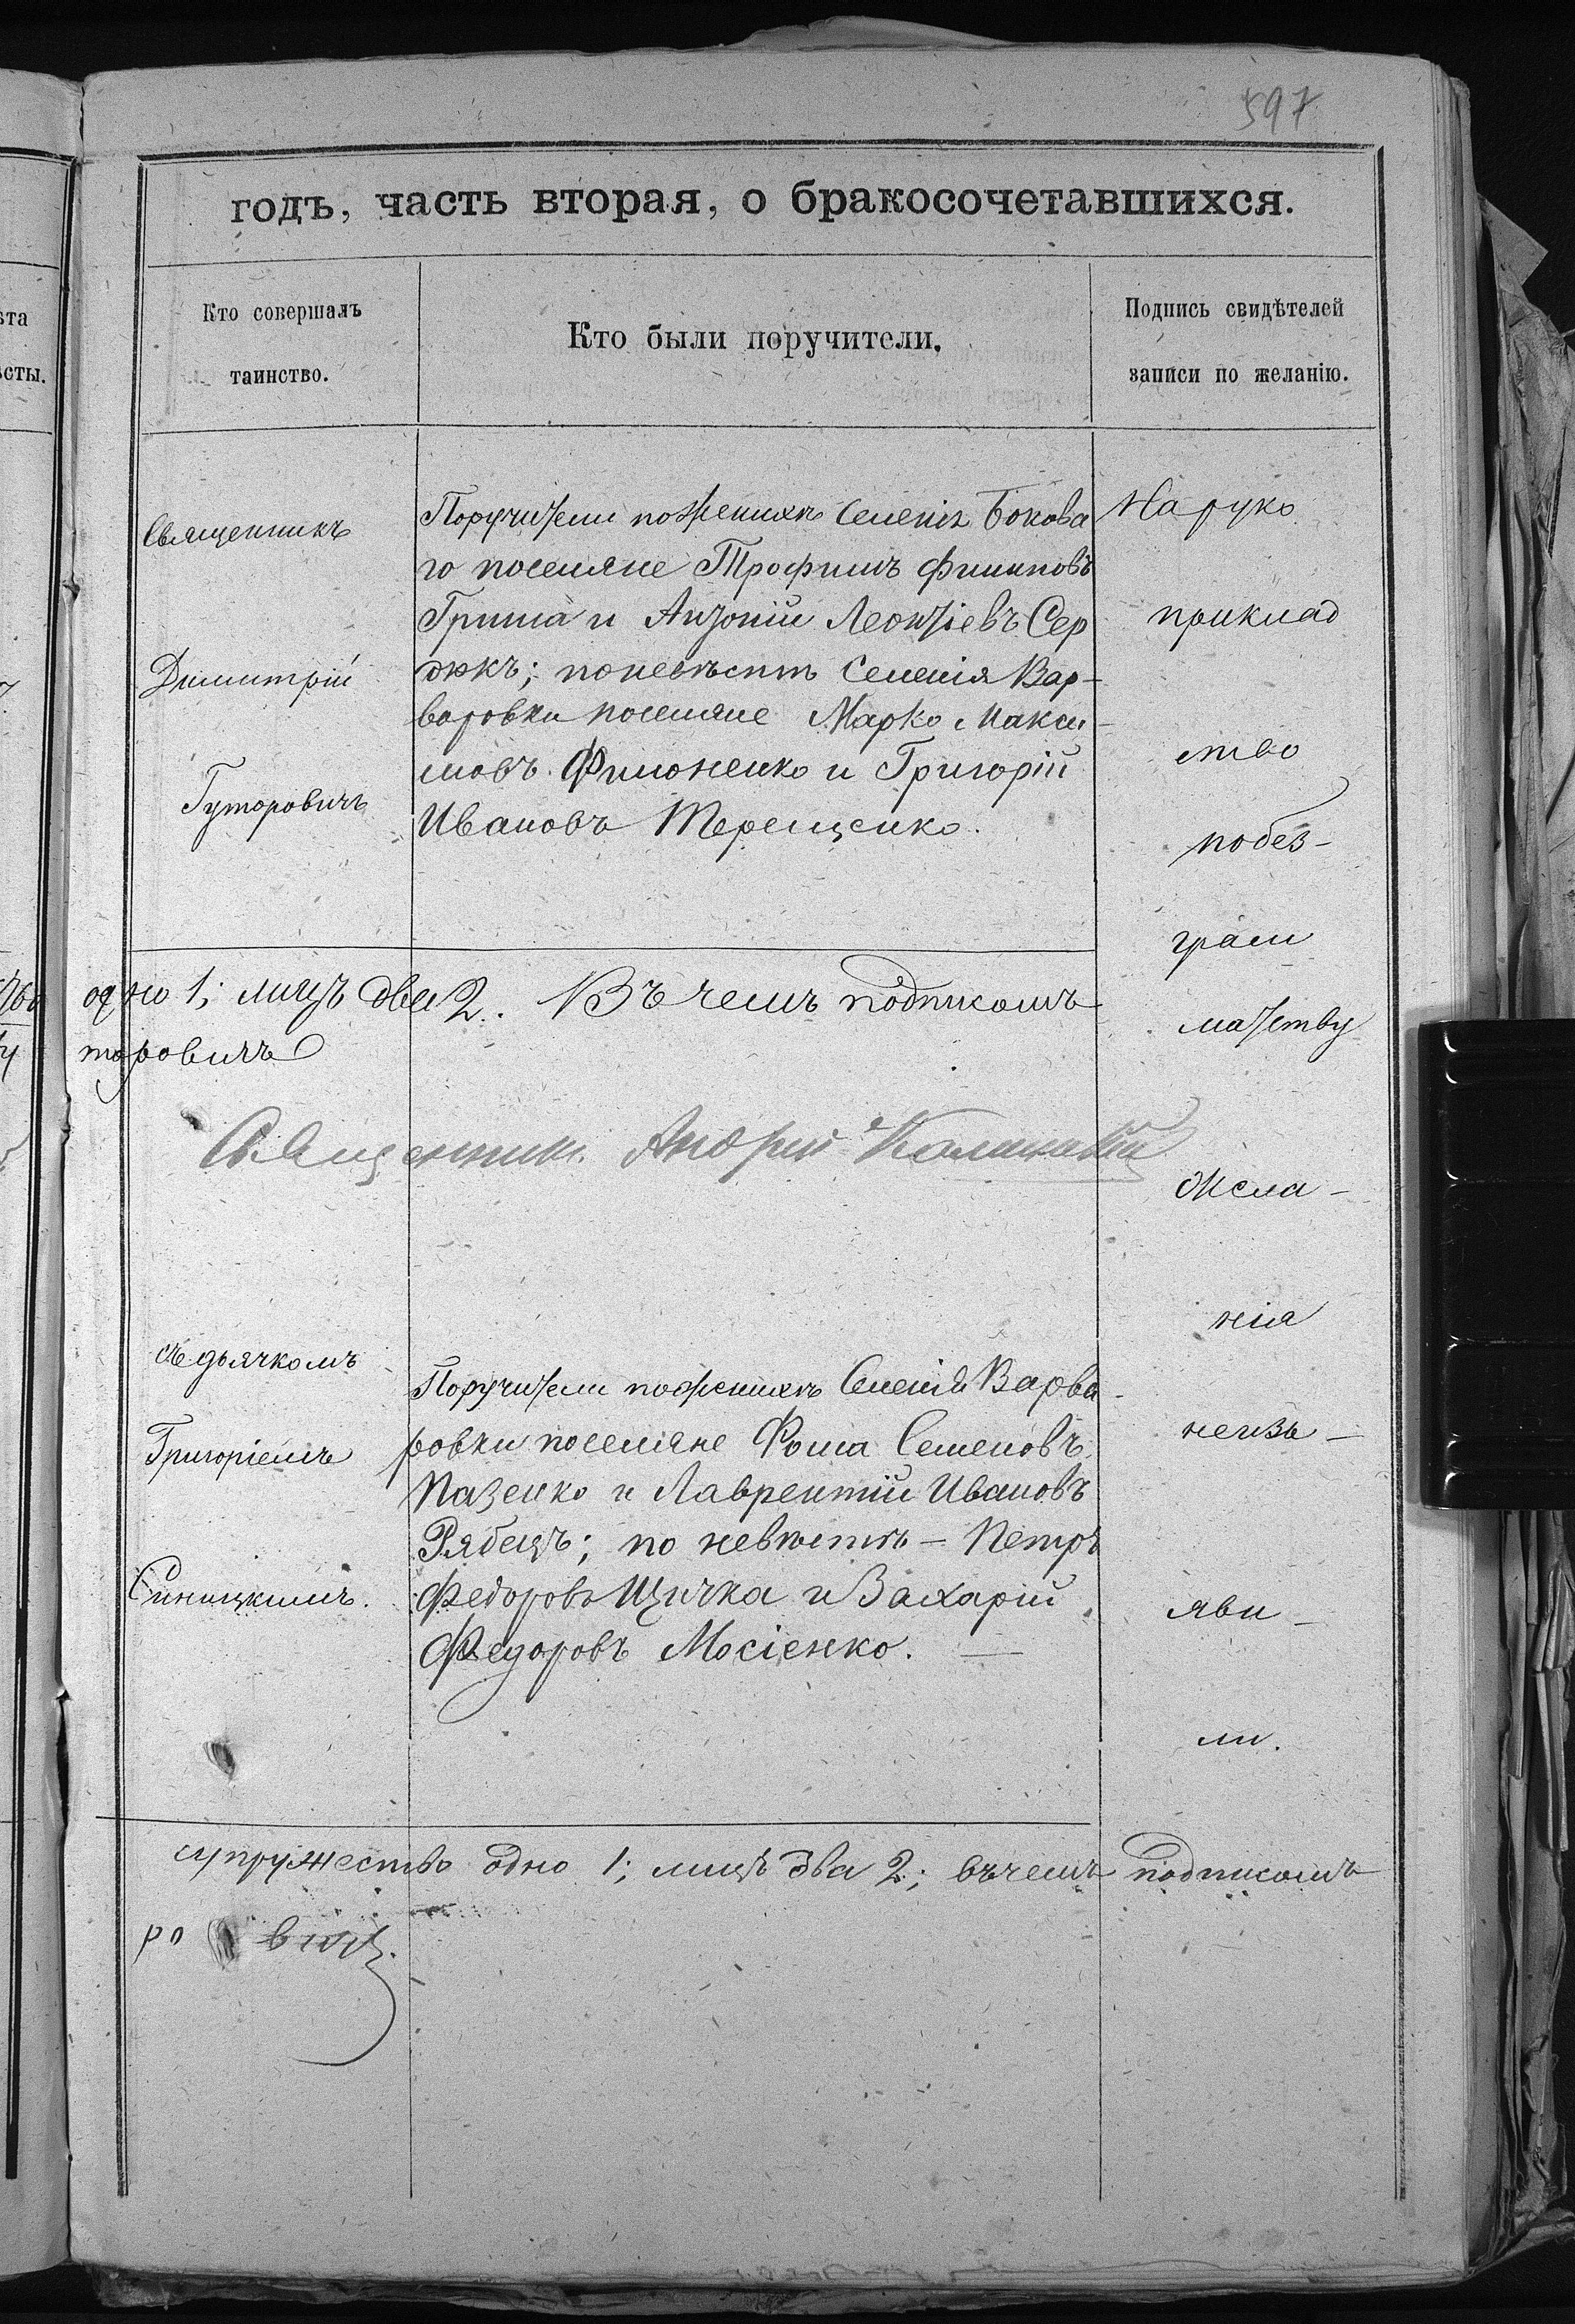 597
годъ, часть вторая, о бракосочетавшихся.
Кто совершалъ
таинство.
Кто были поручители.
Подпись свидѣтелей
записи по желанію.
ѣта
ѣсты.
Священникъ
Димитрій
Гуторовичъ
Поручители пожениху Селенія Бокова
го поселяне Трофимъ Филиповъ
Грима и Антоній Леонтіевъ Сер
дюкъ; поневѣстѣ Селенія Вар-
варовки поселяне Марко Макси-
мовъ Филоненко и Григорій
Ивановъ Терещенко.
одно 1; лицъ два 2. Въ чемъ подпискомъ
торовичъ
Священникъ Андрей
съ дьячкомъ
Григоріемъ
Синицкимъ.
Поручители пожениху Селенія Варва-
ровки поселяне Фома Семеновъ
Пазенко и Лаврентій Ивановъ
Рябецъ; по невѣстѣ - Петръ
Федоровъ Щичка и Захарій
Федоровъ Мосіенко.
Наруко
приклад
ство
побез-
грам
матству
жела-
нія
неизъ-
яви-
ли.
супружество одно 1; лицъ два 2; въчемъ подпискомъ
ро вичъ.